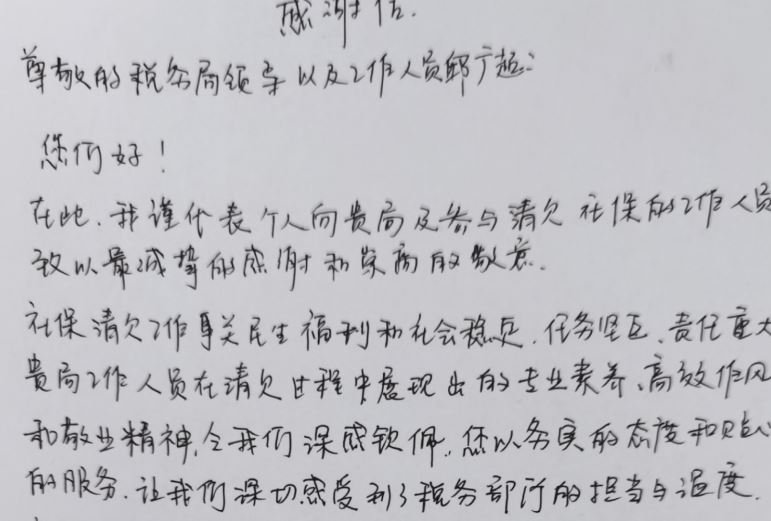 感谢信.
尊敬的税务局领导以及工作人员邱广超:
您们好!
在此.我谨代表个人向贵局及参与清欠社保的工作人员
致以最诚挚的感谢和崇高的敬意.
社保清欠工作事关民生福利和社会稳定.任务坚巨、责任重大
贵局工作人员在清欠过程中展现出的专业素养、高效作风
和敬业精神,令我们深感钦佩.您以务实的态度和贴心
的服务.让我们深切感受到了税务部门的担当与温度.